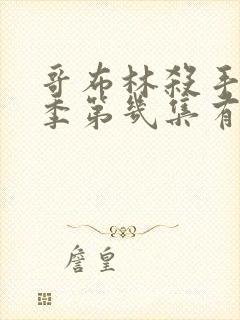 哥布林殺手
季第幾集有
詹皇